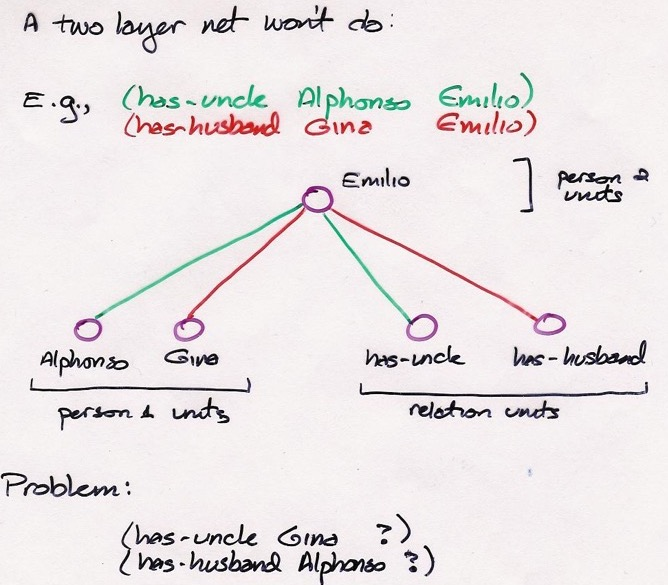 A two layer net won't do:
E.g., (has-uncle Alphonso Emilio)
(has-husband Gina Emilio)
Emilio
person 2
units
Alphonso Gina has-uncle has-husband
person 1 units relation units
Problem:
(has-uncle Gina ?)
(has-husband Alphonso ?)